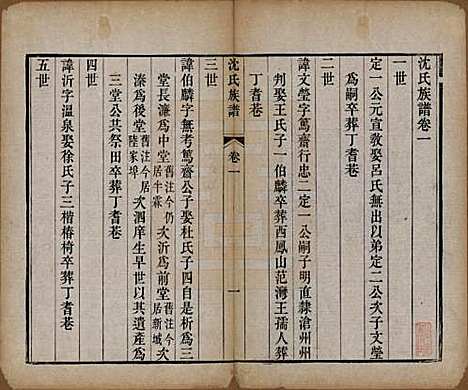 沈氏族譜卷一
一世
定一公元宣教娶呂氏無出以弟定二公次子文瑩
爲嗣卒葬丁耆巷
二世
諱文瑩字篤齋行忠二定一公嗣子明直隷滄州州
判娶王氏子一伯麟卒葬西鳳山范灣王孺人葬
丁耆巷
沈氏族譜 卷一 一
三世
諱伯麟字無考篤齋公子娶杜氏子四自是析爲三
堂長濂爲中堂舊注今仍居半霖次沂爲前堂舊注今居新城次
溱爲後堂舊注今居陸家埠次泗庠生早世以其遺產爲
三堂公共祭田卒葬丁耆巷
四世
諱沂字溫泉娶徐氏子三楷椿椅卒葬丁耆巷
五世